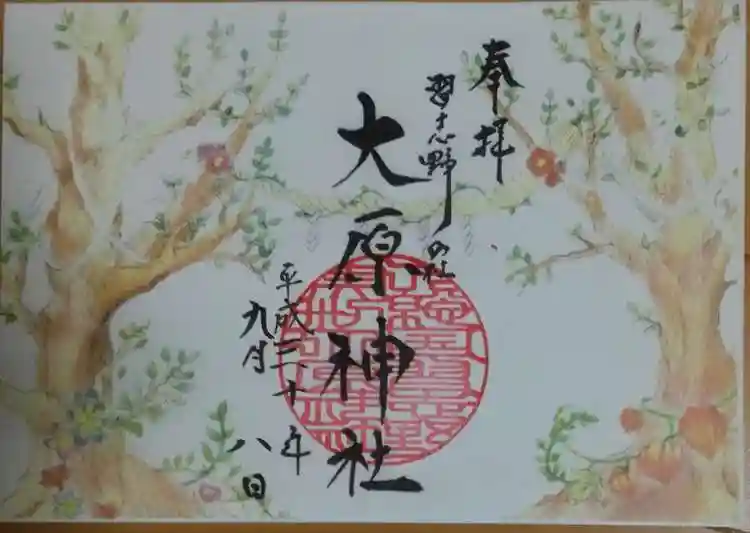 奉拝
習志野の社
大原神社
平成三十年
九月八日